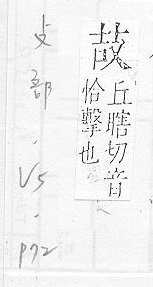 丘瞎切音
恰擊也
攴部.V5.P72